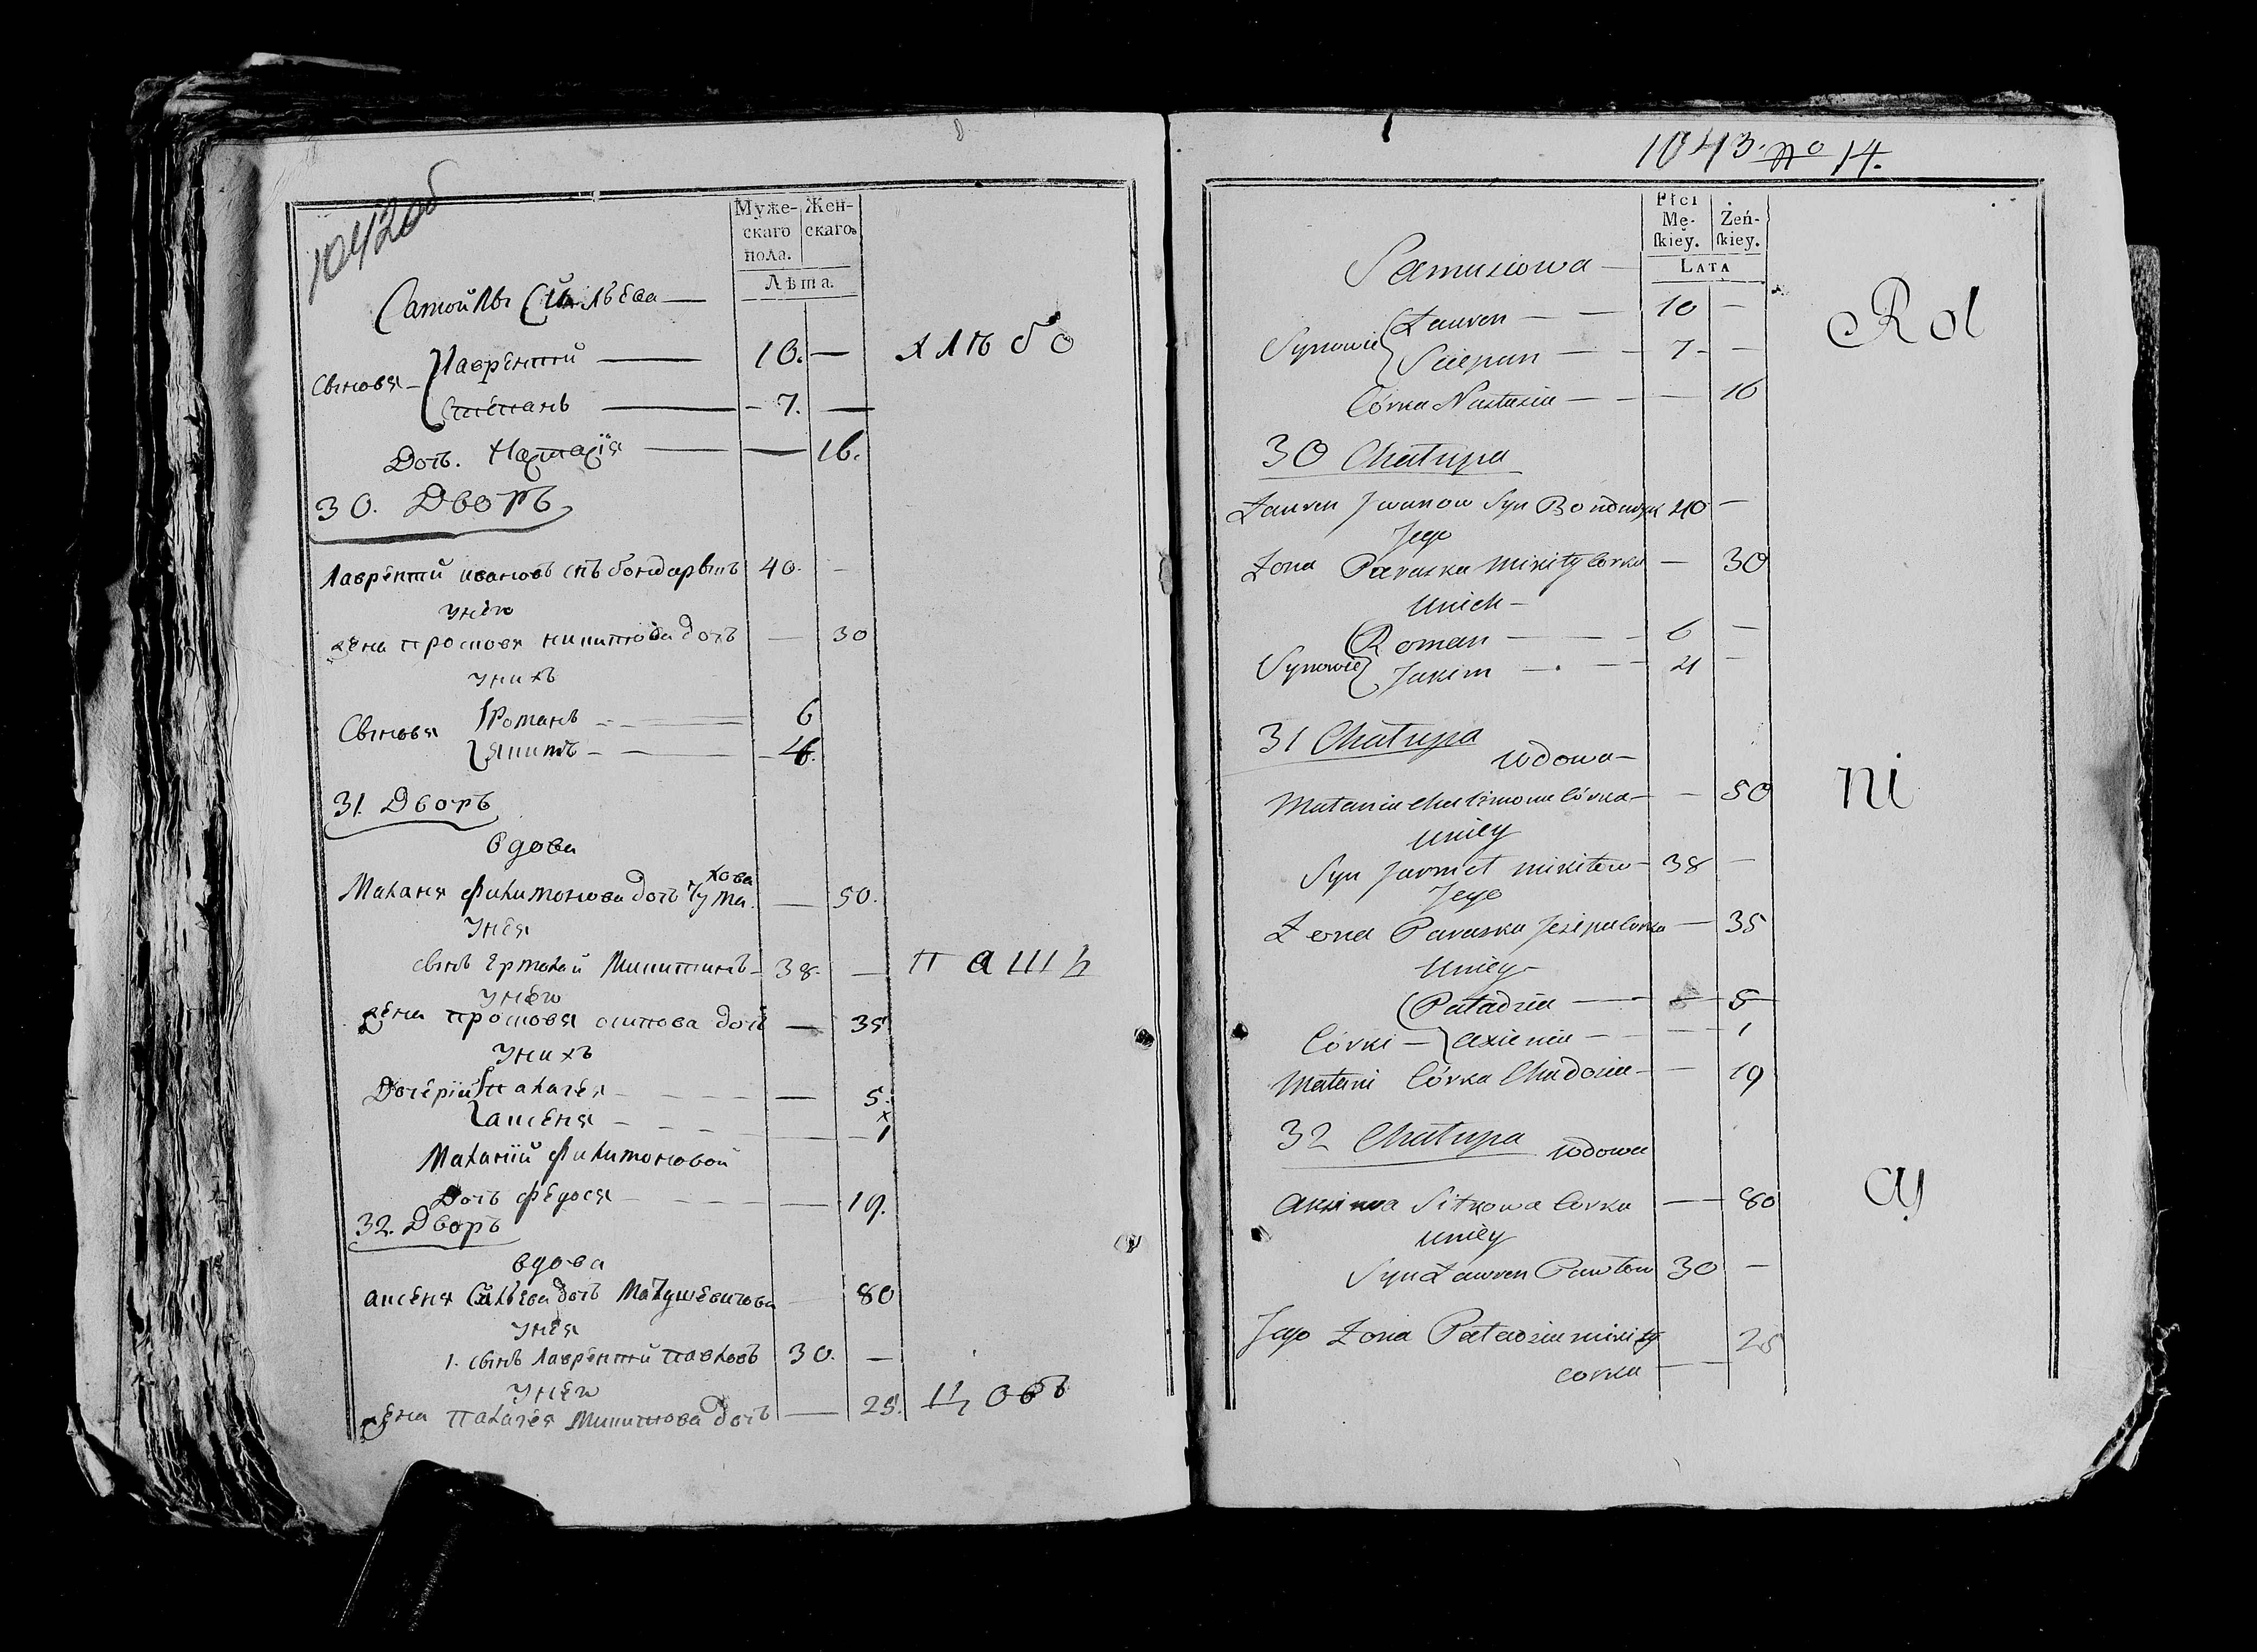 1042об
Муже- Жен-
скаго скаго.
пола.
Лѣта.
Самойлы
Сыновья Лаврентий — 10. —
Степанъ — 7. —
Дочь. Настасїя — — 16.
хлѣбо
30. Дворъ
Лаврентий ивановъ снъ бондарыкъ 40. —
у него
жена просковя никитова дочь — 30
у нихъ
Сыновья Романъ — 6
якимъ — 4.
31. Дворъ
вдова
Маланя филимонова дочь — 50.
у нея
сынъ Ермолай Микитинъ — 38. —
пашь
у него
жена просковя осипова дочь — 35
у нихъ
Дочерїи палагея — — 5.
аксеня — — 1
Маланїй филимоновой
Дочь федося — — 19.
32. Дворъ
вдова
аксеня дочь Матушевичова — 80
у нея
1. сынъ Лаврентий павловъ 30. —
у него
жена палагея Микитова дочь — 25.
цовъ
1043. no 14.
Płci
Mę- Żeń-
ſkiey. ſkiey.
LATA
Samusiowa —
Synowie Łauren — — 10 —
Sciepan — — 7 — —
Córka Nastasia — — — 16
Rol
30 Chałupa
Łauren Iwanow Syn Bondaryk 40 —
Jego
Żona Paraska Mikity Corka — 30
Unich —
Synowie Roman — — 6 —
Jakim — — 4 —
31 Chałupa
wdowa —
Małania Chalimona Córka — — 50
ni
Uniey
Syn Jarmoł Mikitow — 38 —
Jego
Żona Paraska Jesipa Corka — 35
Uniey —
Córki — Paładzia — — 5
Axienia — — — 1
Małani Córka Chadosia — — 19
32 Chałupa
wdowa
Axinia Sitkowa Corka — 80
cy
Uniey
Syn Łauren Pawłow 30 —
Jego Żona Paładzia Mikity
corka — — 25